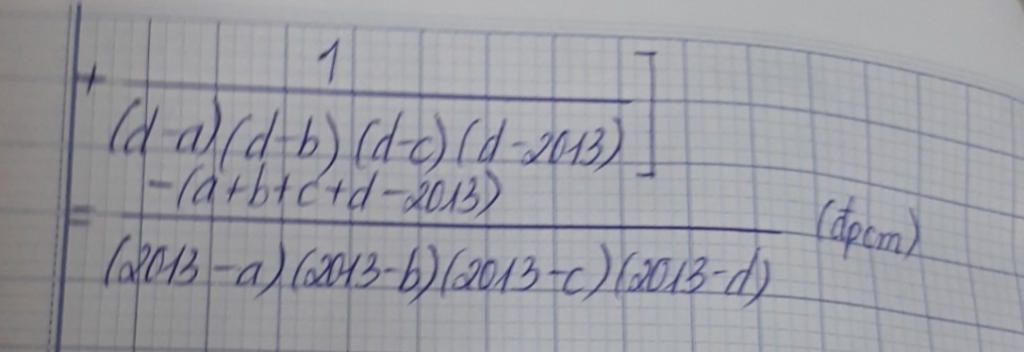 + 1 ]
(d-a)(d-b)(d-c)(d-2013)
= -(a+b+c+d-2013)
(2013-a)(2013-b)(2013-c)(2013-d) (đpcm)